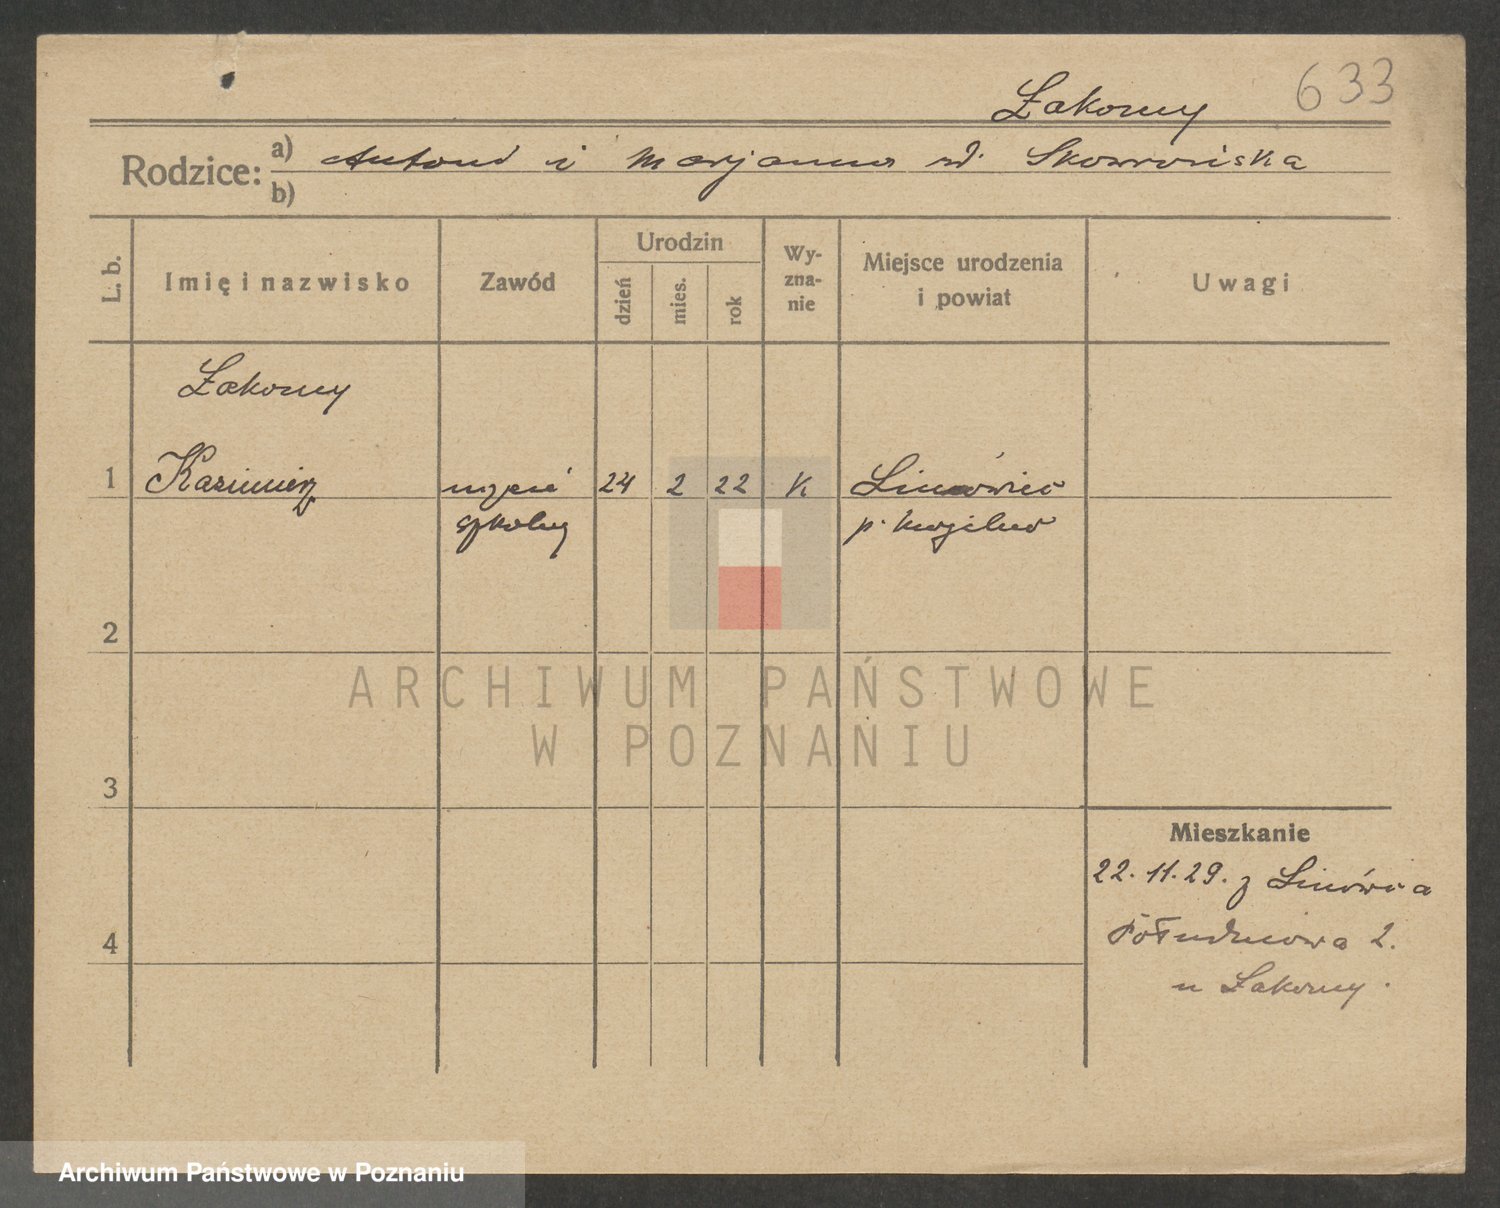 633
Łakomy
Rodzice: a) Antoni i Marjanna ur. Skowrońska
b)
L. b. Imię i nazwisko Zawód Urodzin dzień mies. rok Wy-zna-nie Miejsce urodzenia i powiat Uwagi
Łakomy
1 Kazimierz uczeń 24 2 22 K Linówiec
szkolny p. Mogilno
2
ARCHIWUM PAŃSTWOWE
W POZNANIU
3
Mieszkanie
22. 11. 29. z Linówca
4 Południowa 2.
u Łakomy.
Archiwum Państwowe w Poznaniu